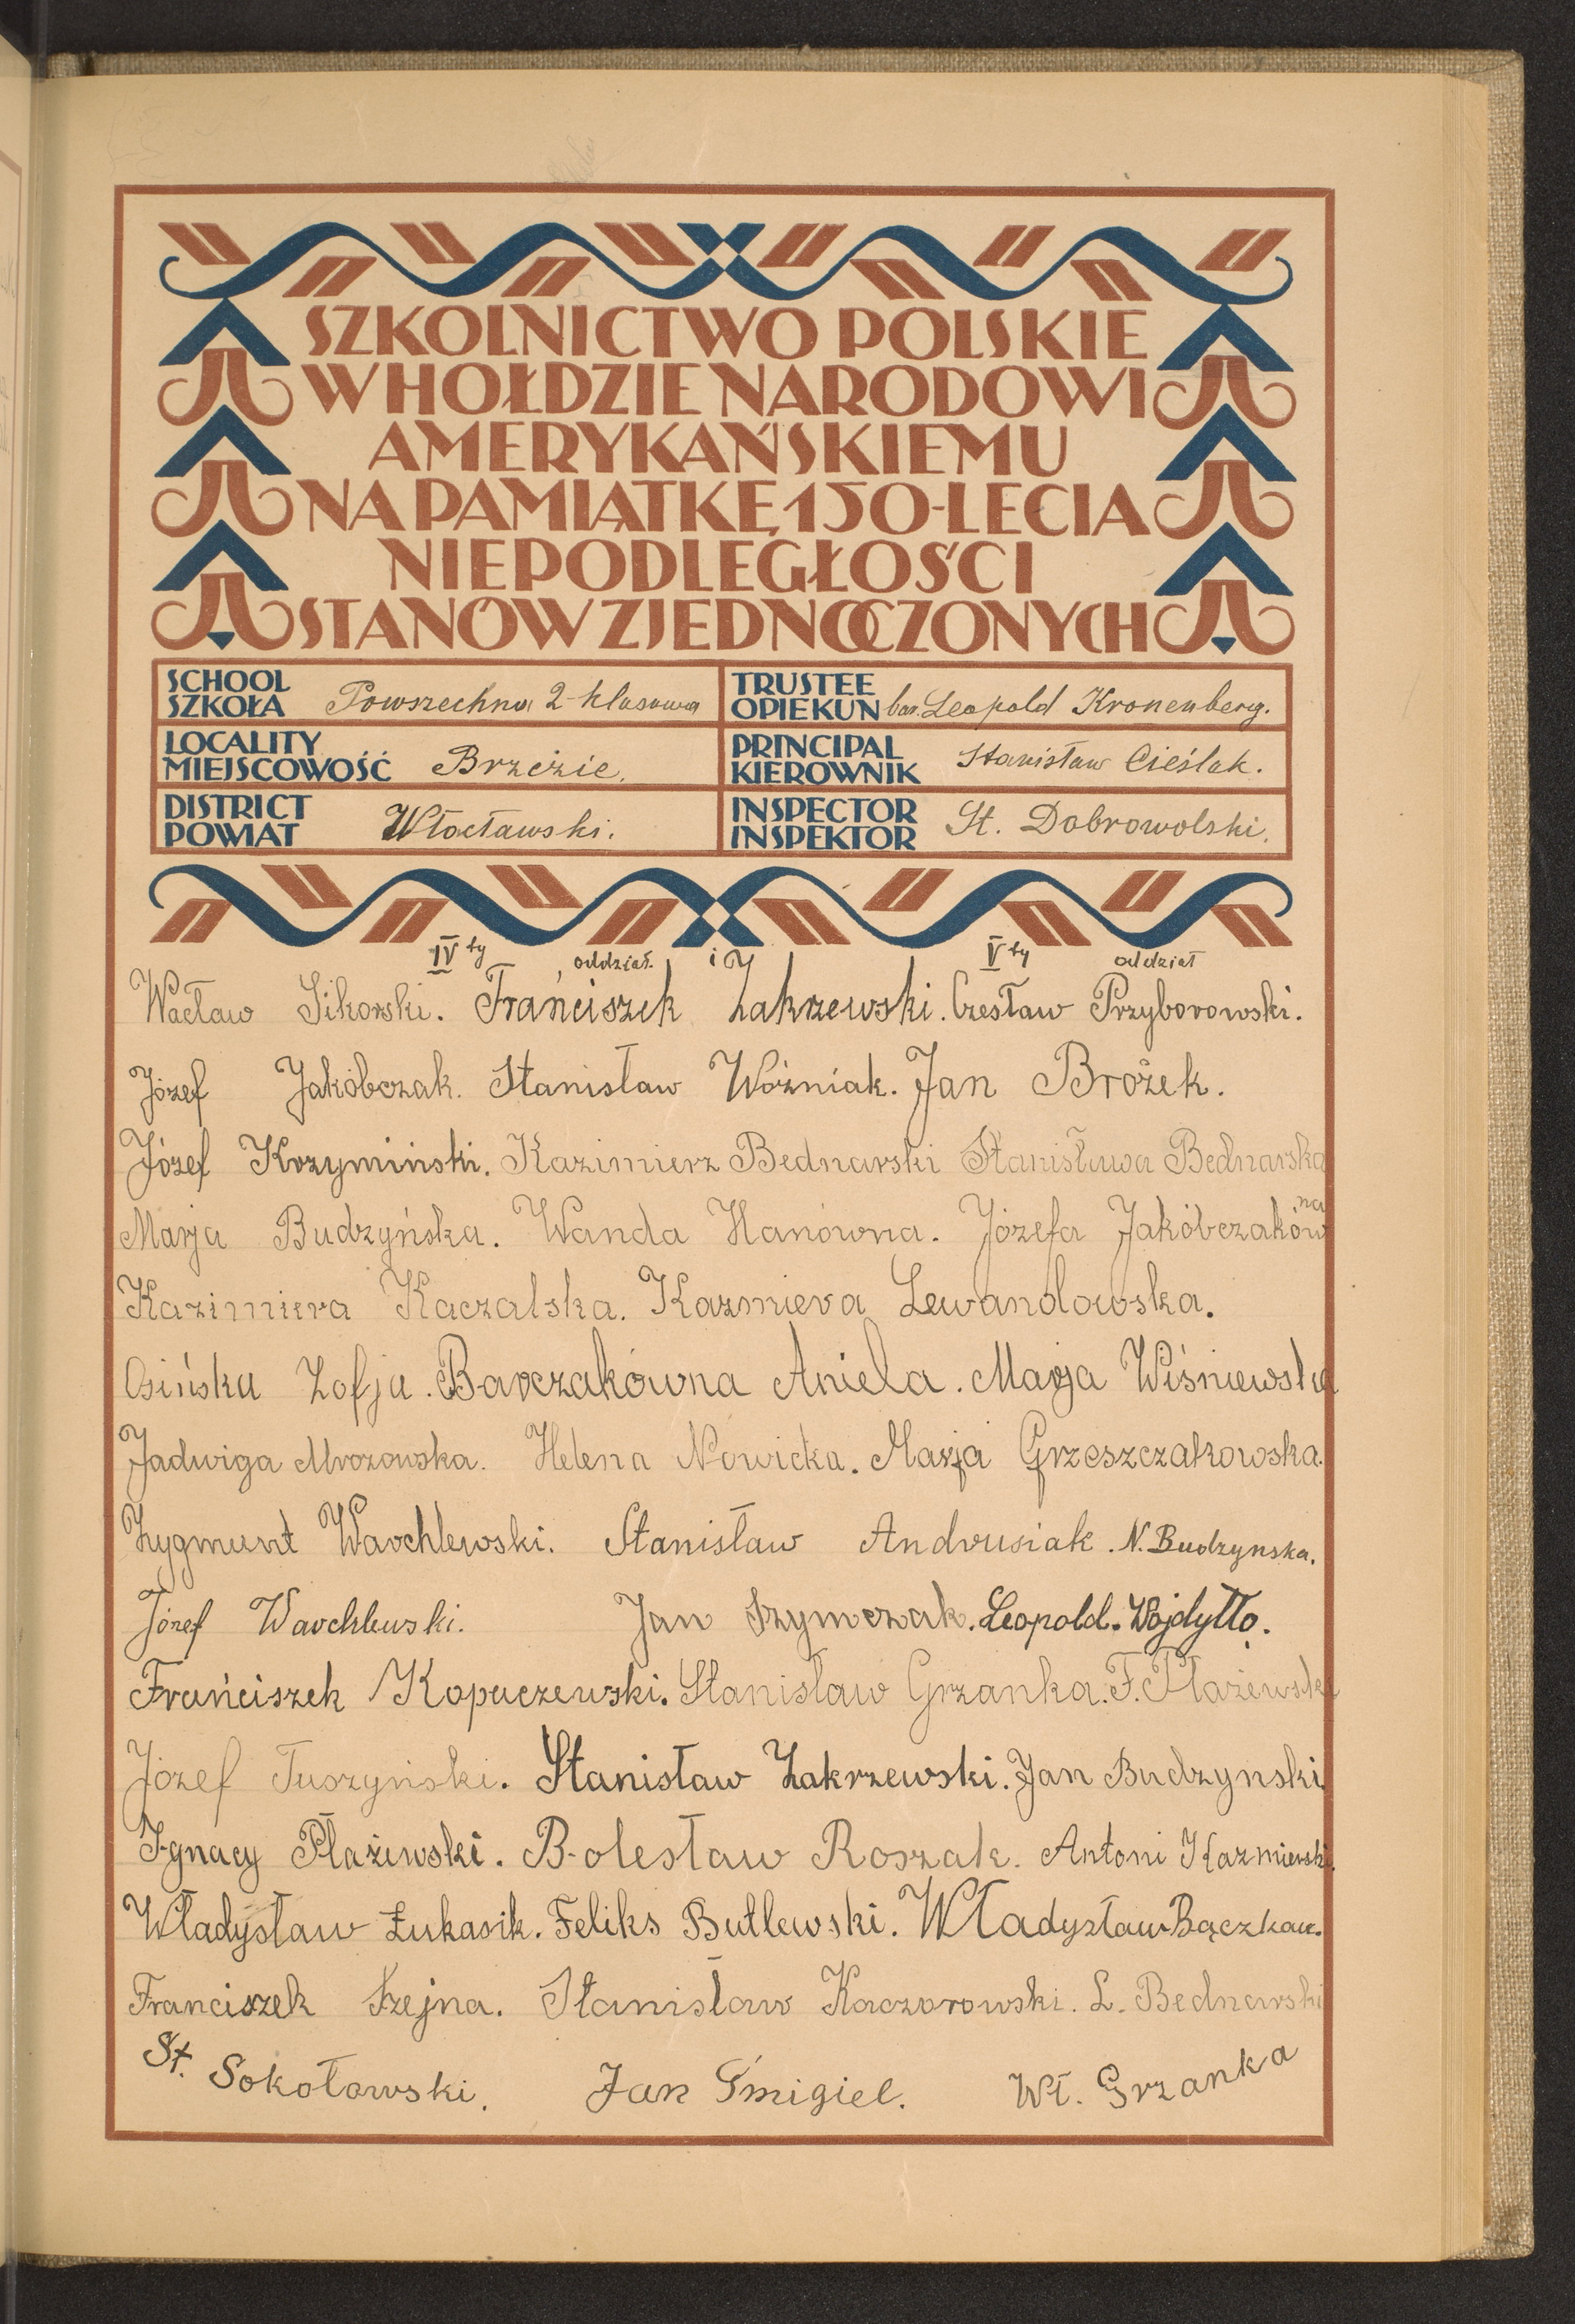 SZKOLNICTWO POLSKIE
W HOŁDZIE NARODOWI
AMERYKAŃSKIEMU
NA PAMIĄTKĘ 150-LECIA
NIEPODLEGŁOŚCI
STANÓW ZJEDNOCZONYCH
SCHOOL
SZKOŁA Powszechna 2-klasowa
TRUSTEE
OPIEKUN bar. Leopold Kronenberg.
LOCALITY
MIEJSCOWOŚĆ Brzezie.
PRINCIPAL
KIEROWNIK Stanisław Cieślak.
DISTRICT
POWIAT Włocławski.
INSPECTOR
INSPEKTOR St. Dobrowolski.
IV ty oddział. i V ty oddział
Wacław Sikorski. Franciszek Zakrzewski. Czesław Przyborowski.
Józef Jakóbczak. Stanisław Woźniak. Jan Brożek.
Józef Krzymiński. Kazimierz Bednarski Stanisława Bednarska
Marja Budzyńska. Wanda Hanówna. Józefa Jakóbczakówna
Kazimiera Kaczalska. Kazmiera Lewandowska.
Osińska Zofja. Barczakówna Aniela. Marja Wiśniewska
Jadwiga Mrozowska. Helena Nowicka. Marja Grzeszczakowska.
Zygmunt Warchlewski. Stanisław Andrusiak. N. Budzynska.
Józef Warchlewski. Jan Szymczak. Leopold. Wojdyłło.
Frańciszek Kopaczewski. Stanisław Grzanka. F. Płażewski
Józef Tuszyński. Stanisław Zakrzewski. Jan Budzynski
Ignacy Płażewski. Bolesław Roszak. Antoni Kazmierski.
Władysław Łukasik. Feliks Butlewski. Władysław Bączkow.
Franciszek Szejna. Stanisław Kaczorowski. L. Bednarski
St. Sokołowski. Jan Śmigiel. Wł. Grzanka